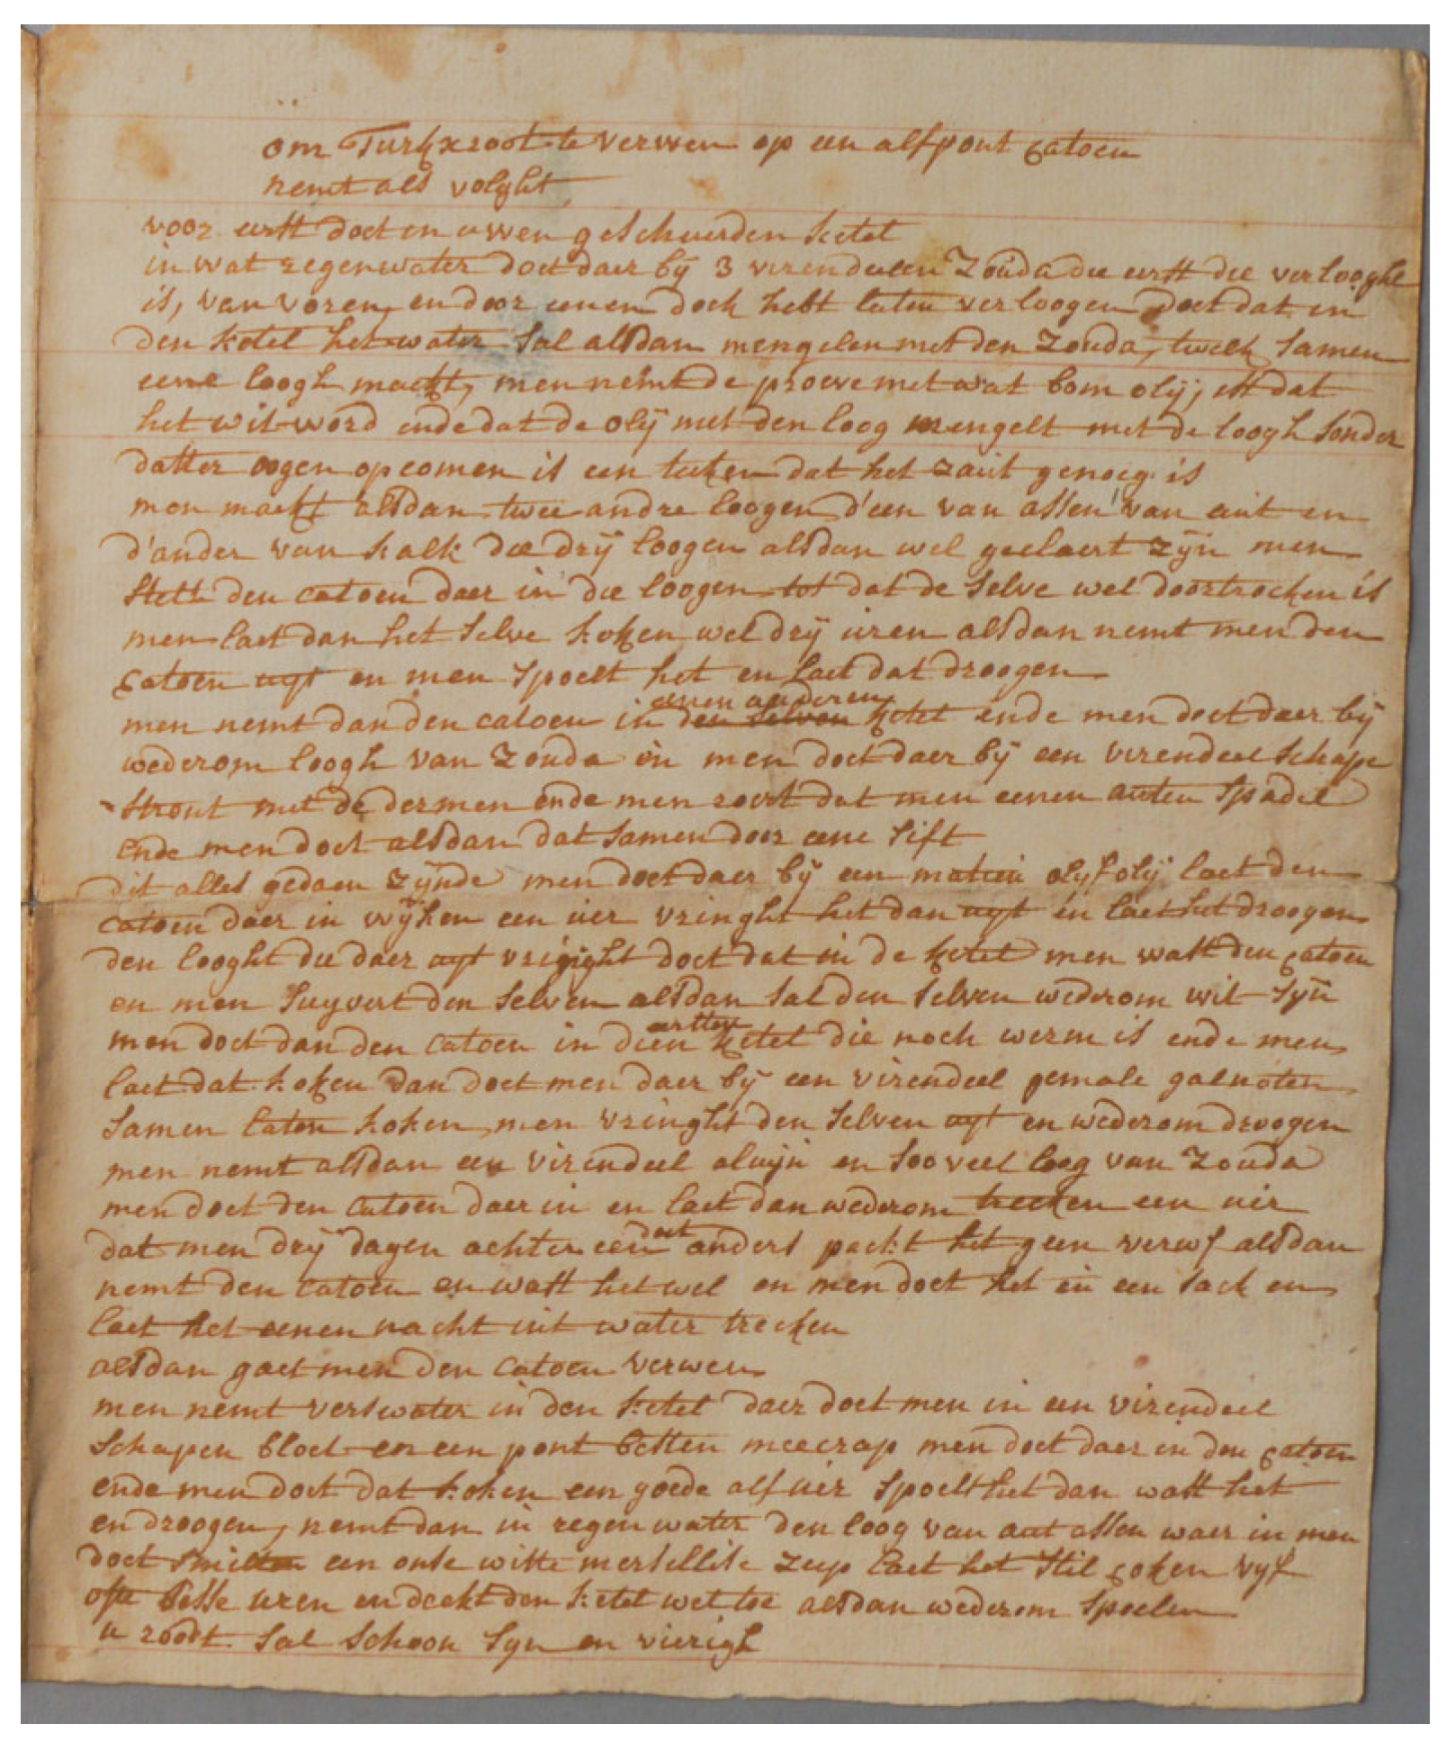 om Turckx root te verwen op een alf pont catoen
nemt als volght
voor eerst doet in uwen geschuerden ketel
in wat regenwater doet daer bij 3 virendeelen Zouda die eerst die verlooght
is, van voren, en door eenen doek hebt laten verloogen doet dat in
den ketel het water sal alsdan mengelen met den Zouda, twelk samen
eene loogh maekt, men nemt de proeve met wat bom olij, ist dat
het wit word ende dat de olij met den loog mengelt met de loogh sonder
datter oogen op comen is een teeken dat het zaut genoeg is
men maekt alsdan twee andre loogen d'een van assen van aut en
d'ander van kalk die drij loogen alsdan wel geclaert zijn men
stelt den catoen daer in die loogen tot dat de selve wel doortrocken is
men laet dan het selve koken wel drij uren alsdan nemt men den
catoen uyt en men spoelt het en laet dat droogen
eenen anderen
men nemt dan den catoen in den selven ketel ende men doet daer bij
wederom loogh van Zouda en men doet daer bij een virendeel schape
stront met de dermen ende men roert dat men eenen auten spadel
ende men doet alsdan dat samen door eene sift
dit alles gedaen zijnde men doet daer bij een olijf olij laet den
catoen daer in wijken een uer vringht het dan uyt en laet het droogen
den looght die daer uyt vringht doet dat in de ketel men wast den catoen
en men suyvert den selven alsdan sal den selven wederom wit sijn
eersten
men doet dan den catoen in dien ketel die noch werm is ende men
laet dat koken dan doet men daer bij een virendeel gemale galnoten
samen laten koken, men vringht den selven uyt en wederom droogen
men nemt alsdan een virendeel aluijn en soo veel loog van Zouda
men doet den catoen daer in en laet dan wederom trecken een uer
doet
dat men drij dagen achter een anders packt het geen verwf alsdan
nemt den catoen en wast het wel en men doet het in een sack en
laet het eenen nacht int water trecken
alsdan gaet men den catoen verwen
men nemt vers water in den ketel daer doet men in een virendeel
schapen bloet en een pont besten meecrap men doet daer in den catoen
ende men doet dat koken een goede alf uer spoelt het dan wast het
en droogen, nemt dan in regen water den loog van aut assen waer in men
doet smilten een onse witte mersellise zeep laet het stil coken vijf
ofte sesse uren en deckt den ketel wel toe alsdan wederom spoelen
u roodt sal schoon sijn en vierigh